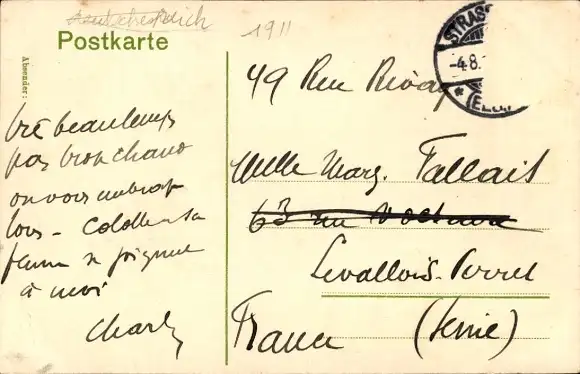 Deutsches Reich
1911
Postkarte
Absender:
STRASS
-4.8.
* (ELS.)
49 Rue Rivay
beau temps
pas trop chaud
on vous embrasse
tous -
femme se joignent
à moi
Charly
Melle Marg. Fallais
63 rue
Levallois-Perret
France (Seine)